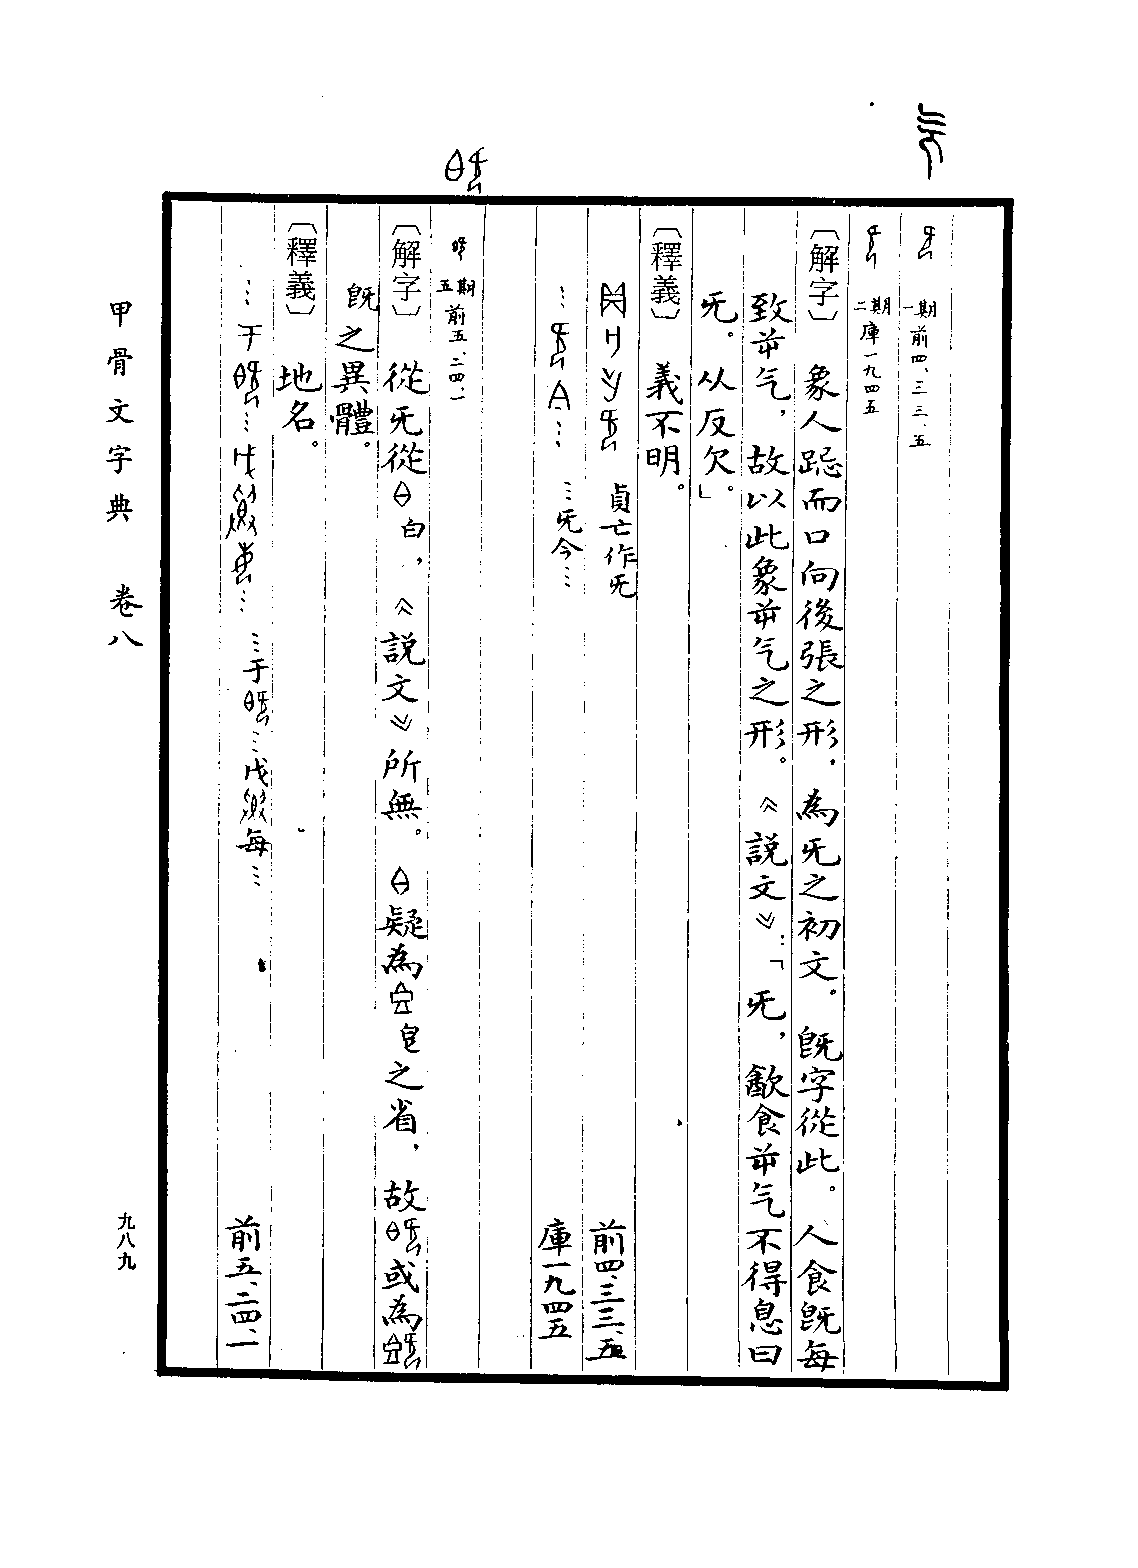 一期 前四、三三、五
二期 庫一九四五
〔解字〕 象人跽而口向後張之形，為旡之初文。旣字從此。人食旣每
致屰气，故以此象屰气之形。《說文》：「旡，歠食屰气不得息曰
旡。从反欠。」
〔釋義〕 義不明。
貞亡作旡 前四、三三、五
…旡今… 庫一九四五
五期 前五、二四、一
〔解字〕 從旡從白，《說文》所無。疑為皀之省，故或為
旣之異體。
〔釋義〕 地名。
…于…戊每… 前五、二四、一
甲骨文字典 卷八
九八九